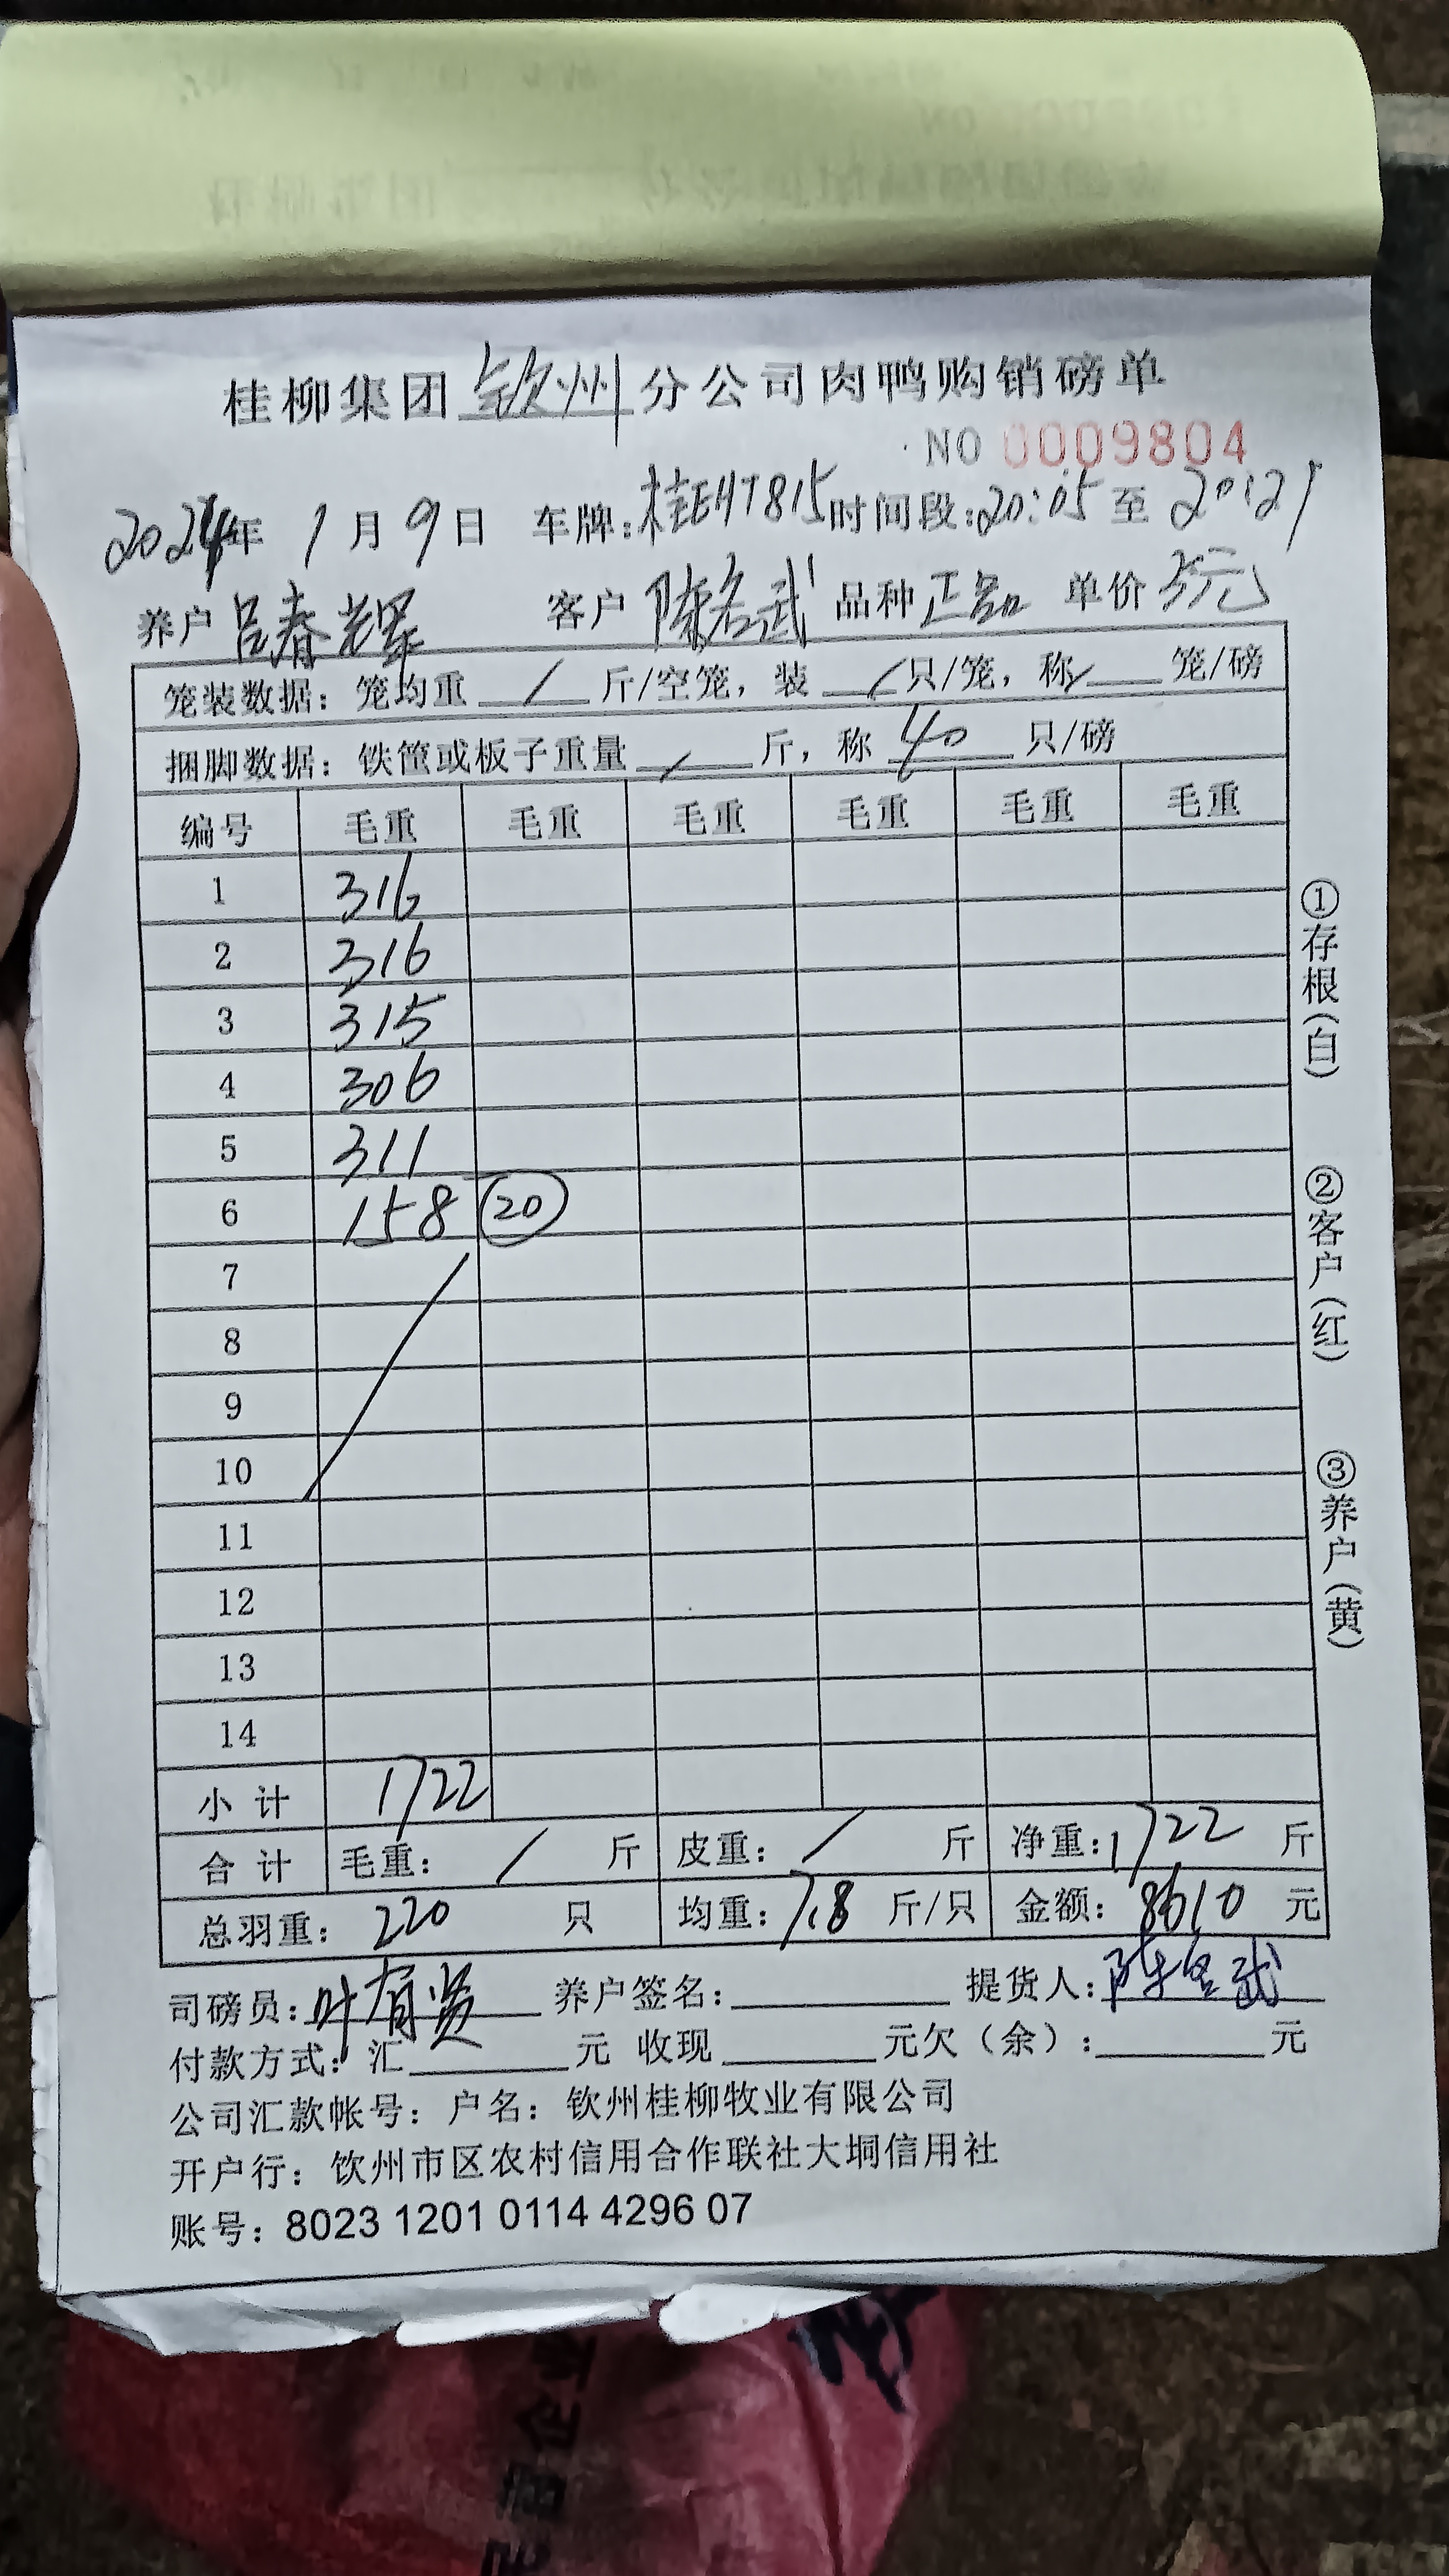 桂柳集团 钦州 分公司肉鸭购销磅单
NO 0009804
2024年 1月 9日 车牌:桂EHT815 时间段:20:05 至 20:21
养户 吕春辉 客户 陈名武 品种 正品 单价 5元
笼装数据: 笼均重 / 斤/空笼, 装 / 只/笼, 称 / 笼/磅
捆脚数据: 铁筐或板子重量 / 斤, 称 40 只/磅
编号 毛重 毛重 毛重 毛重 毛重 毛重
1 316
2 316
3 315
4 306
5 311
6 158 20
7
8
9
10
11
12
13
14
小计 1722
合计 毛重: / 斤 皮重: / 斤 净重: 1722 斤
总羽重: 220 只 均重: 7.8 斤/只 金额: 8610 元
司磅员: 叶有贤 养户签名: 提货人: 陈名武
付款方式: 汇 元 收现 元欠(余): 元
公司汇款帐号: 户名: 钦州桂柳牧业有限公司
开户行: 钦州市区农村信用合作联社大垌信用社
账号: 8023 1201 0114 4296 07
①存根(白)
②客户(红)
③养户(黄)